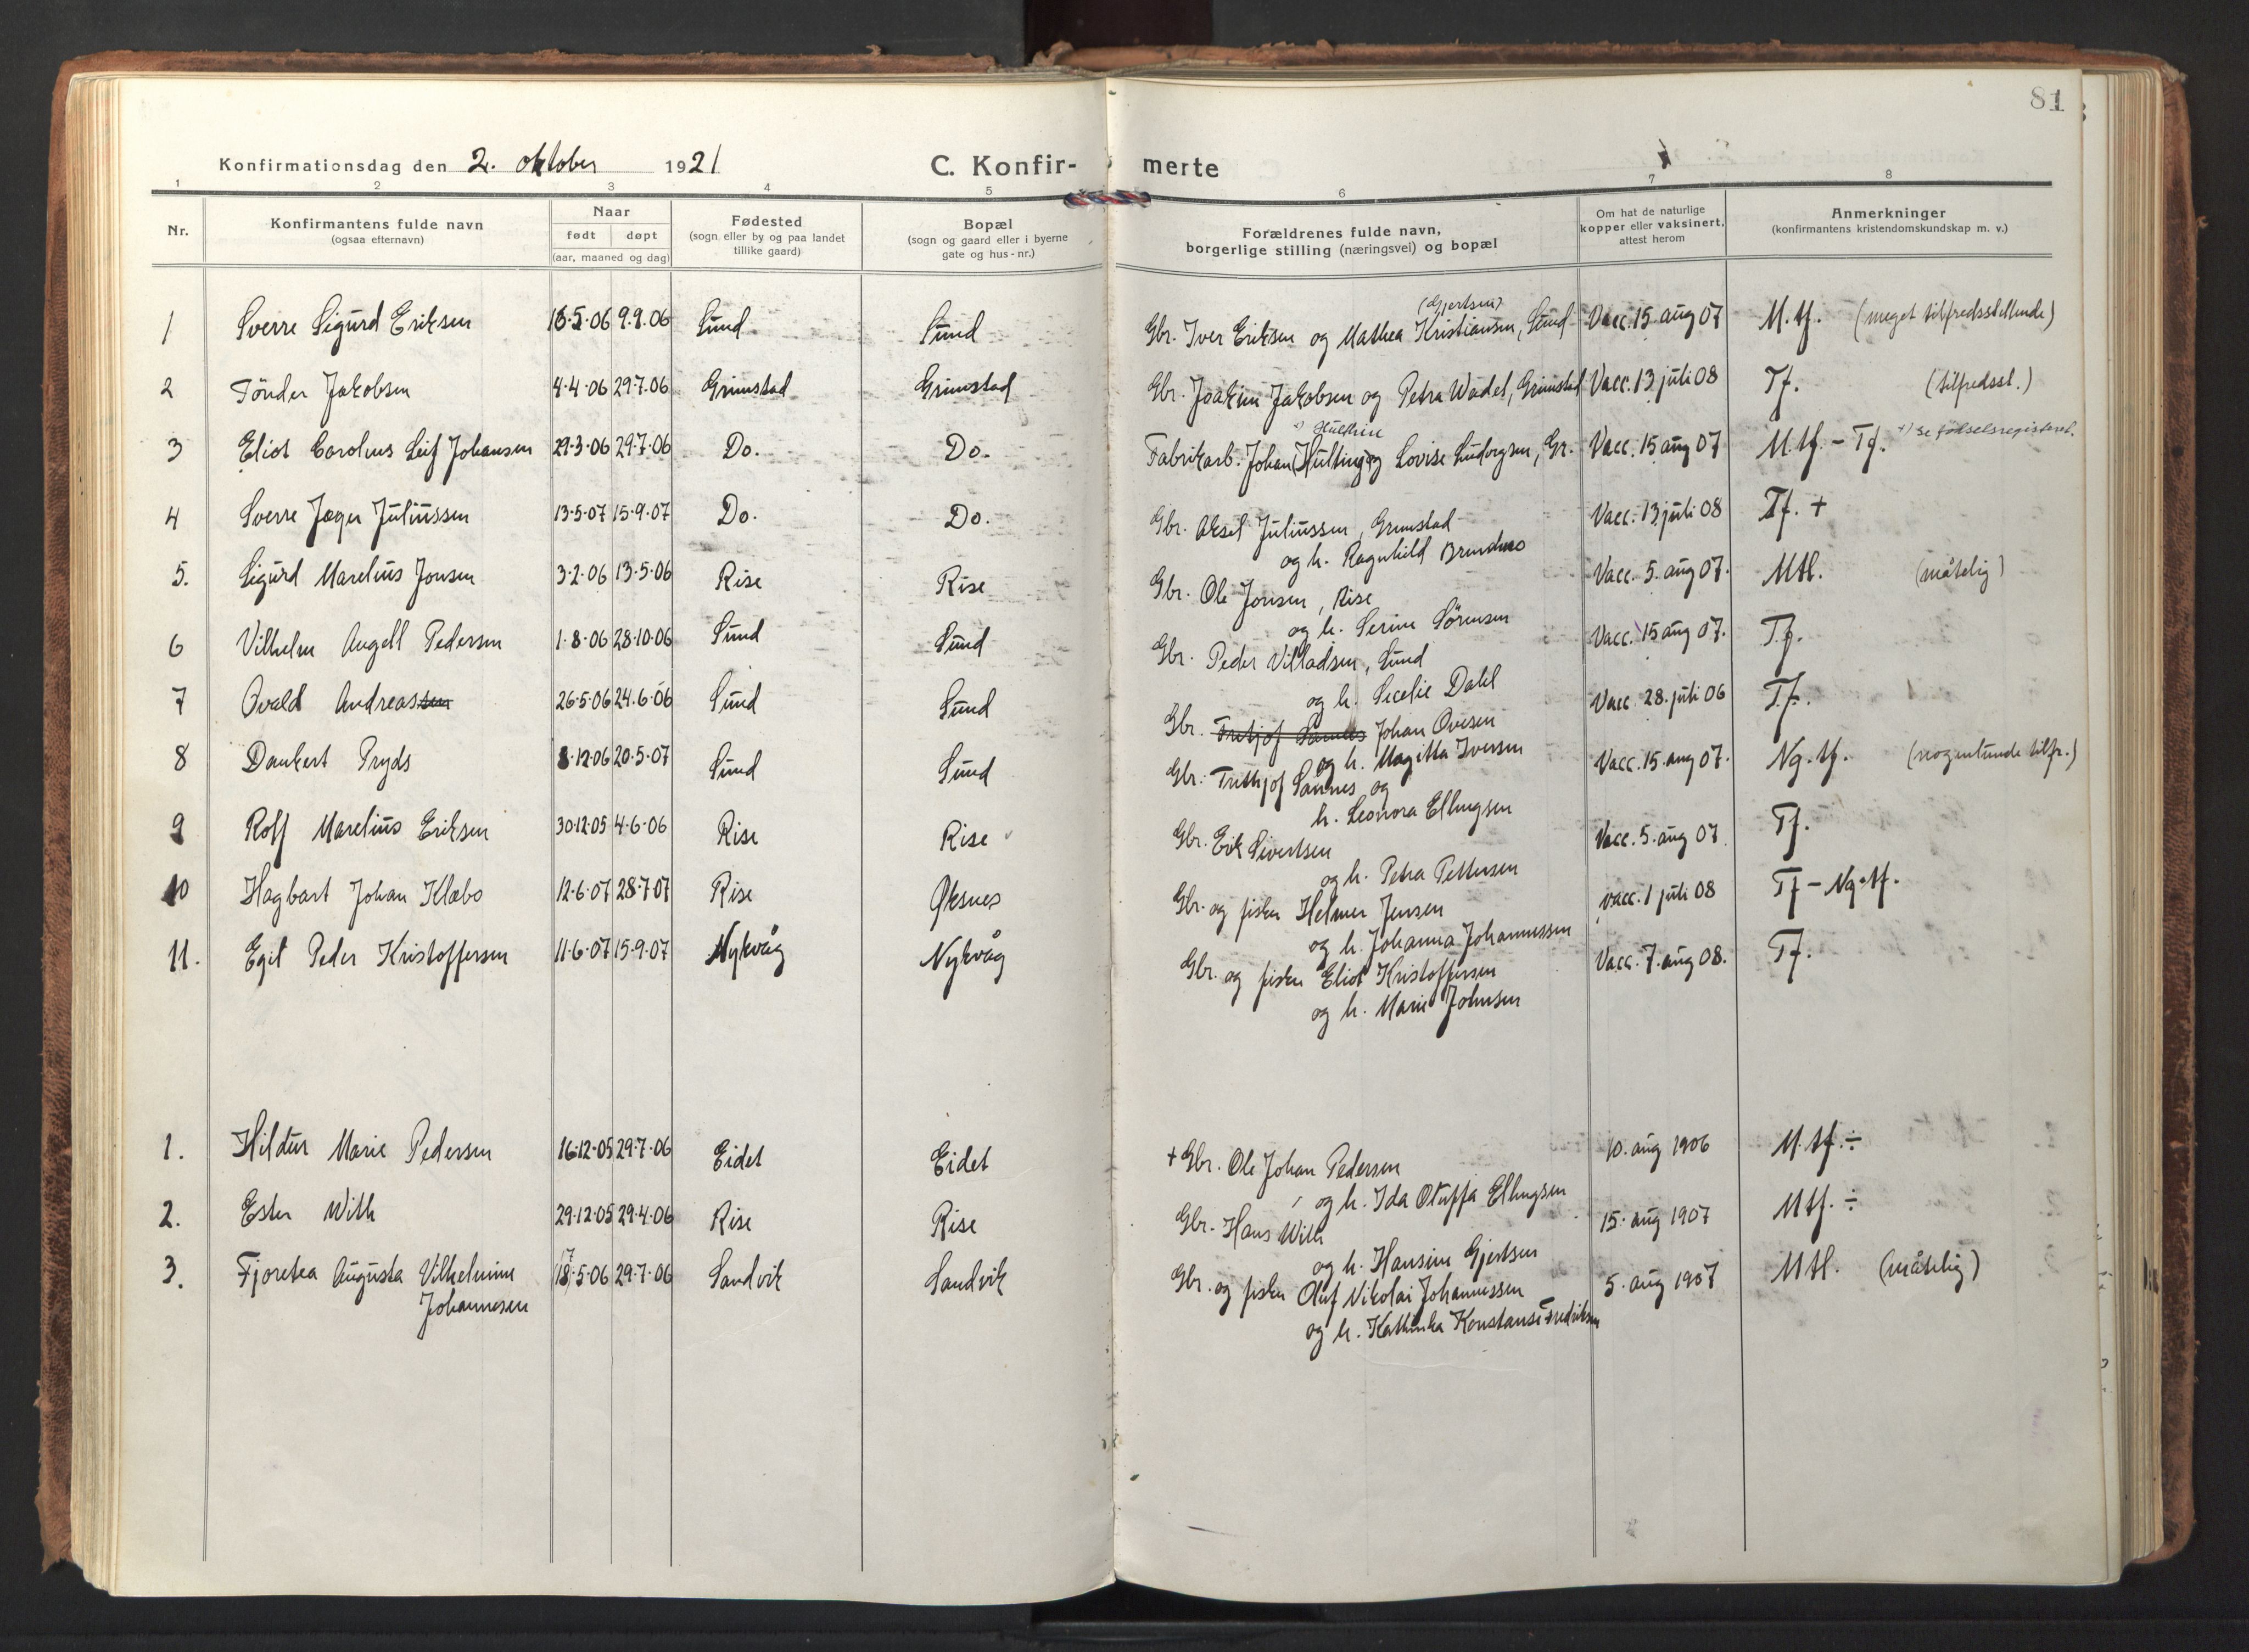 81
Konfirmationsdag den 2. oktober 1921 C. Konfir- merte
1 2 3 4 5 6 7 8
Nr. Konfirmantens fulde navn (ogsaa efternavn) Naar født døpt (aar, maaned og dag) Fødested (sogn eller by og paa landet tillike gaard) Bopæl (sogn og gaard eller i byerne gate og hus-nr.) Forældrenes fulde navn, borgerlige stilling (næringsvei) og bopæl Om hat de naturlige kopper eller vaksinert, attest herom Anmerkninger (konfirmantens kristendomskundskap m. v.)
(Gjertsen)
1 Sverre Sigurd Eriksen 18.5.06 9.9.06 Sund Sund Gbr. Iver Eriksen og Mathea Kristiansen, Sund Vacc. 15 aug 07 M.tf. (meget tilfredsstillende)
2 Tönder Jakobsen 4.4.06 29.7.06 Grimstad Grimstad Gbr. Joakim Jakobsen og Petra Wadel, Grimstad Vacc. 13 juli 08 Tf. (tilfredsst.)
3 Eliot Carolius Leif Johansen 29.3.06 29.7.06 Do. Do. Fabrikarb. Johan (Hulting) og Lovise Ludvigsen, Gr. Vacc. 15 aug 07 M.tf. - Tf. +) se fødselsregisteret.
4 Sverre Jæger Juliussen 13.5.07 15.9.07 Do. Do. Gbr. Aksel Juliussen, Grimstad Vacc. 13 juli 08 Tf. +
og h. Ragnhild
5. Sigurd Marelius Jonsen 3.2.06 13.5.06 Rise Rise Gbr. Ole Jonsen, Rise Vacc. 5. aug 07. Mtl. (måtelig)
og h. Serine Sörensen
6 Vilhelm Angell Pedersen 1.8.06 28.10.06 Sund Sund Gbr. Peder Villadsen, Sund Vacc. 15 aug 07. Tf.
og h. Secelie Dahl
7 Ovald Andreassen 26.5.06 24.6.06 Sund Sund Gbr. Fritjof Sannes Johan Ovesen Vacc. 28. juli 06 Tf.
og h. Magitta Iversen
8 Dankert Pryds 8.12.06 20.5.07 Sund Sund Gbr. Frithjof Sannes og Vacc. 15. aug 07. Ng. tf. (nogenlunde tilfr.)
h. Leonora Ellingsen
9 Rolf Marelius Eriksen 30.12.05 4.6.06 Rise Rise Gbr. Erik Sivertsen Vacc. 5. aug 07 Tf.
og h. Petra Pettersen
10 Hagbart Johan Klæbo 12.6.07 28.7.07 Rise Øksnes Gbr. og fisker Helmer Jensen vacc. 1 juli 08 Tf - Ng. tf.
og h. Johanna Johannessen
11. Egil Peder Kristoffersen 11.6.07 15.9.07 Nykvåg Nykvåg Gbr. og fisker Eliot Kristoffersen Vacc. 7. aug 08. Tf.
og h. Marie Johnsen
1. Hildur Marie Pedersen 16.12.05 29.7.06 Eidet Eidet + Gbr. Ole Johan Pedersen 10. aug 1906 M.tf. ÷
og h. Ida Ellingsen
2. Ester With 29.12.05 29.4.06 Rise Rise Gbr. Hans With 15. aug 1907 Mtf. ÷
og h. Hansine Gjertsen
17
3. Fjoretea Augusta Vilhelmine 18.5.06 29.7.06 Sandvik Sandvik Gbr. og fisker Oluf Nikolai Johannessen 5. aug 1907 Mtl. (måtelig)
Johannesen og h. Kathinka Konstanse Fredriksen